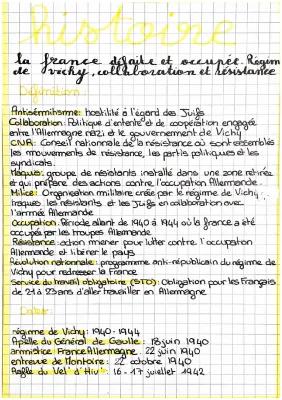 histoire
la france défaite et occupée. Régime
de vichy, collaboration et résistance
Définition:
Antisérmitisme: hostilité à l'égard des Juifs
Collaboration: Politique d'entente et de coopération engagée
entre l'Allemagne nazi et le gouvernement de Vichy
CNR: Conseil nationale de la résistance où sont assemblés
les mouvements de résistance, les partis politiques et les
syndicats.
Maquis: groupe de résistants installé dans une zone retirée
et qui prépare des actions contre l'occupation Allemande.
Milice: Organisation militaire crée par le régime de Vichy,
traques les résistants et les Juifs en collaboration avec
l'armée Allemande
Occupation: Période allant de 1940 à 1944 où la france a été
occupé par les troupes Allemande
Résistance: action mener pour lutter contre l'occupation
Allemande et libérer le pays
Révolution nationale: programme anti-républicain du régime de
Vichy pour redresser la France
Service du travail obligatoire (STO): Obligation pour les Français
de 21 à 23 ans d'aller travailler en Allemagne
Dates:
régime de Vichy: 1940-1944
Apelle du Général de Gaulle: 18 juin 1940
armistice France Allemagne: 22 juin 1940
entrevue de Montoire: 22 octobre 1940
Rafle du Vel' d'Hiv': 16-17 juillet 1942